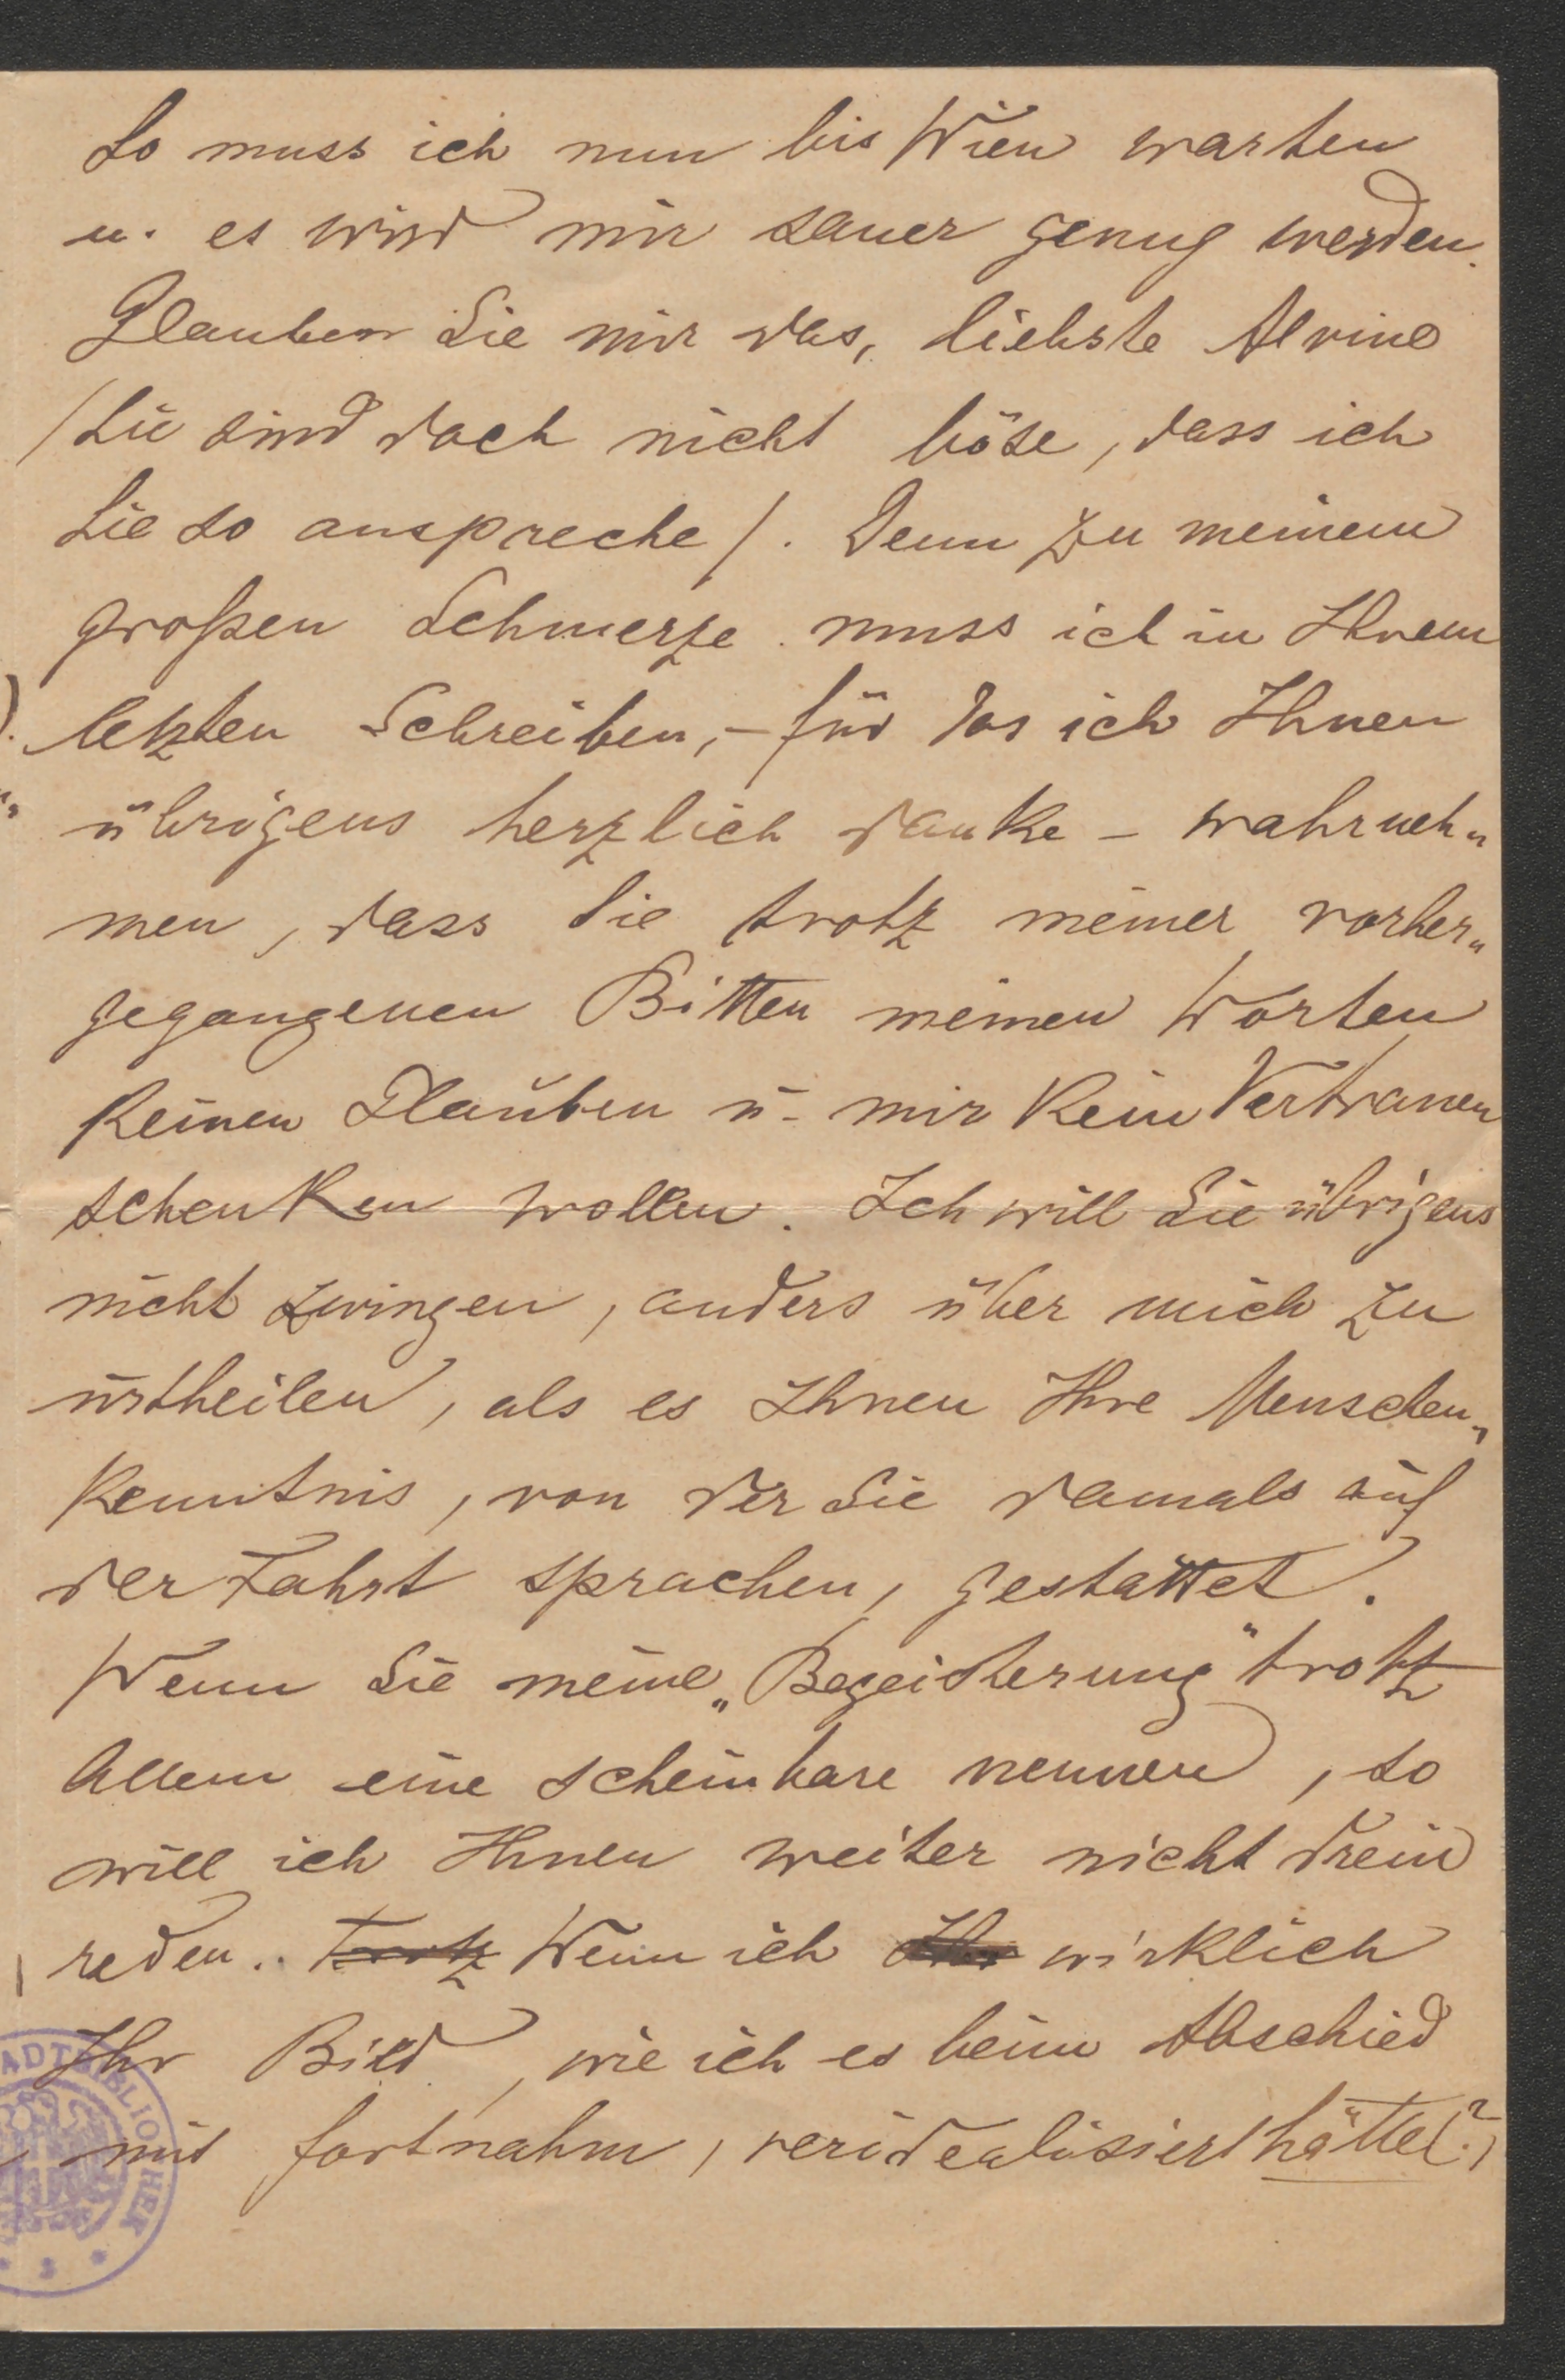 So muss ich nun bis Wien warten
u. es wird mir sauer genug werden.
Glauben Sie mir das, liebste Alvine
/Sie sind doch nicht böse, dass ich
Sie so anspreche/. Denn zu meinem
großen Schmerze muss ich in Ihrem
letzten Schreiben, – für das ich Ihnen
übrigens herzlich danke – wahrneh„
men, dass Sie trotz meiner vorher„
gegangenen Bitten meinen Worten
keinen Glauben u. mir kein Vertrauen
schenken wollen. Ich will Sie übrigens
nicht zwingen, anders über mich zu
urtheilen, als es Ihnen Ihre Menschen„
kenntnis, von der Sie damals auf
der Fahrt sprachen, gestattet.
Wenn Sie meine „Begeisterung" trotz
Allem eine scheinbare nennen, so
will ich Ihnen weiter nicht drein
reden. Trotz Wenn ich Ihr wirklich
Ihr Bild, wie ich es beim Abschied
mit fortnahm, veridealisiert hätte(?)
ADTBIBLIOTHEK